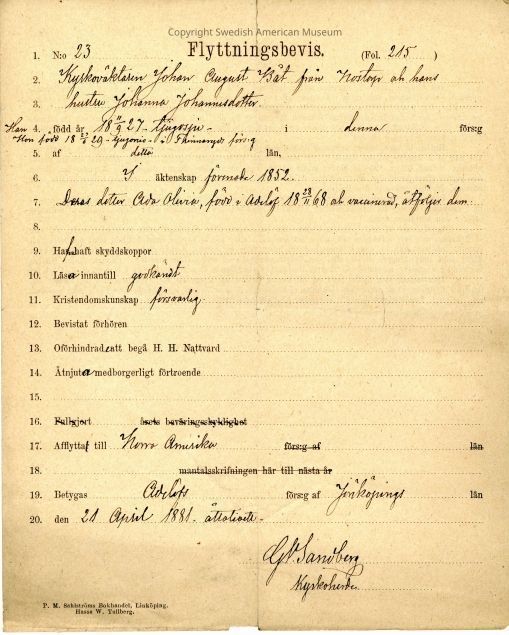 Copyright Swedish American Museum
Flyttningsbevis.
1. N:o 23 (Fol. 215)
2. Kyrkovaktaren Johan August Båt från och hans
3. hustru Johanna Johannesdotter.
Han 4. född år 18 11/9 27 - tjugosju - i denna förs:g
Hon född 18 29 - tjugonio - i förs:g
5. af detta län,
6. I äktenskap förenade 1852.
7. Deras dotter Ada Olivia, född i Adelöf 18 28/11 68 och vaccinerad, åtföljer dem.
8.
9. Haft skyddskoppor
10. Läsa innantill godkändt
11. Kristendomskunskap försvarlig
12. Bevistat förhören
13. Oförhindrade att begå H. H. Nattvard
14. Åtnjuta medborgerligt förtroende
15.
16. Fullgjort årets beväringsskyldighet
17. Afflyttat till Norra Amerika förs:g af län
18. mantalsskrifningen här till nästa år
19. Betygas Adelöfs förs:g af Jönköpings län
20. den 21 April 1881. åttatioett -
Sandberg
Kyrkoherde
P. M. Sahlströms Bokhandel, Linköping.
Hasse W. Tullberg.